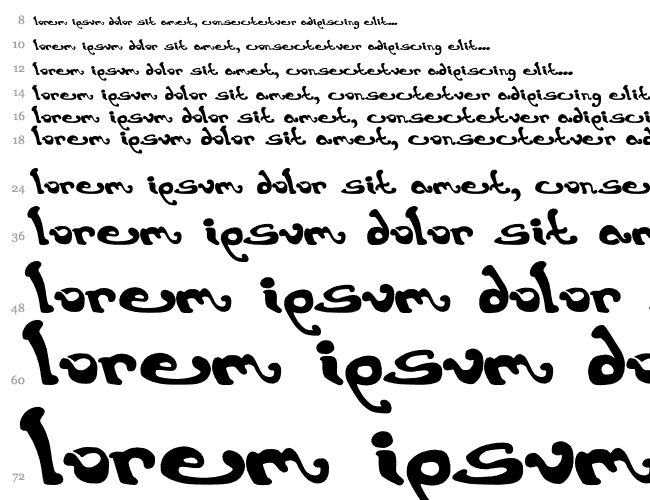 8 lorem ipsum dolor sit amet, consectetuer adipiscing elit...
10 lorem ipsum dolor sit amet, consectetuer adipiscing elit...
12 lorem ipsum dolor sit amet, consectetuer adipiscing elit...
14 lorem ipsum dolor sit amet, consectetuer adipiscing elit
16 lorem ipsum dolor sit amet, consectetuer adipisci
18 lorem ipsum dolor sit amet, consectetuer ad
24 lorem ipsum dolor sit amet, conse
36 lorem ipsum dolor sit am
48 lorem ipsum dolor
60 lorem ipsum do
72 lorem ipsum